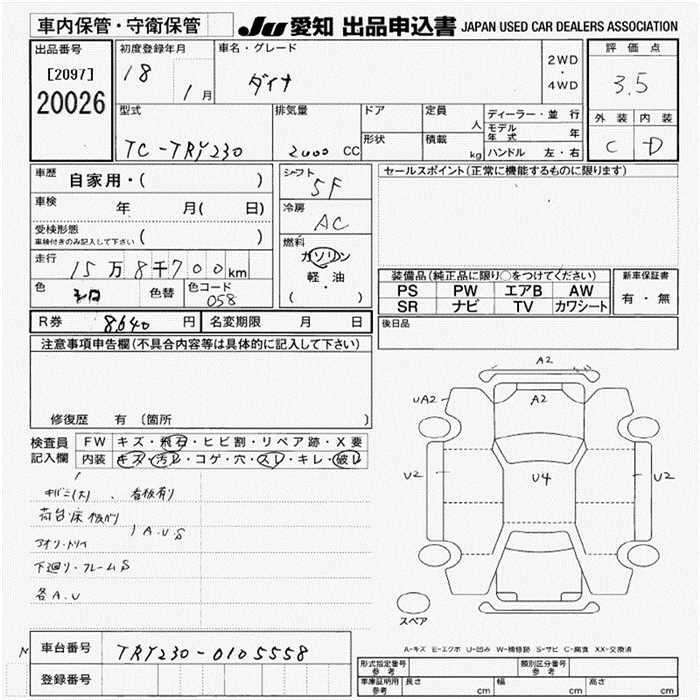 車内保管・守衛保管
JU 愛知 出品申込書 JAPAN USED CAR DEALERS ASSOCIATION
出品番号
[2097]
20026
初度登録年月
18 1月
車名・グレード
ダイナ
2WD
・
4WD
評価点
3.5
外装 内装
C D
型式
TC-TRY230
排気量
2000 CC
ドア
形状
定員
人
積載
kg
ディーラー・並行
モデル年式 年
ハンドル 左・右
車歴 自家用・( )
車検 年 月( 日)
受検形態
車検付きのみ記入して下さい ( )
走行 15万8千700km
色 シロ 色替 色コード 058
シフト
5F
冷房
AC
燃料
ガソリン
軽・油
( )
セールスポイント(正常に機能するものに限ります)
装備品(純正品に限り○をつけてください)
PS PW エアB AW
SR ナビ TV カワシート
新車保証書
有・無
後日品
R券 8640 円 名変期限 月 日
注意事項申告欄(不具合内容等は具体的に記入して下さい)
修復歴 有 (箇所 )
検査員記入欄
FW キズ・飛石・ヒビ割・リペア跡・X要
内装 キズ・汚レ・コゲ・穴・スレ・キレ・破レ
キバミ(大)、看板有り
荷台床板バリ
A.U.S
アオリ・トリイ
下廻り・フレームS
各A.U
A2
UA2
A2
U2
U4
U2
スペア
A-キズ E-エクボ U-凹み W-補修跡 S-サビ C-腐食 XX-交換済
車台番号 TRY230-0105558
登録番号
型式指定番号 参考
類別区分番号 参考
車庫証明用 参考 長さ cm 幅 cm 高さ cm